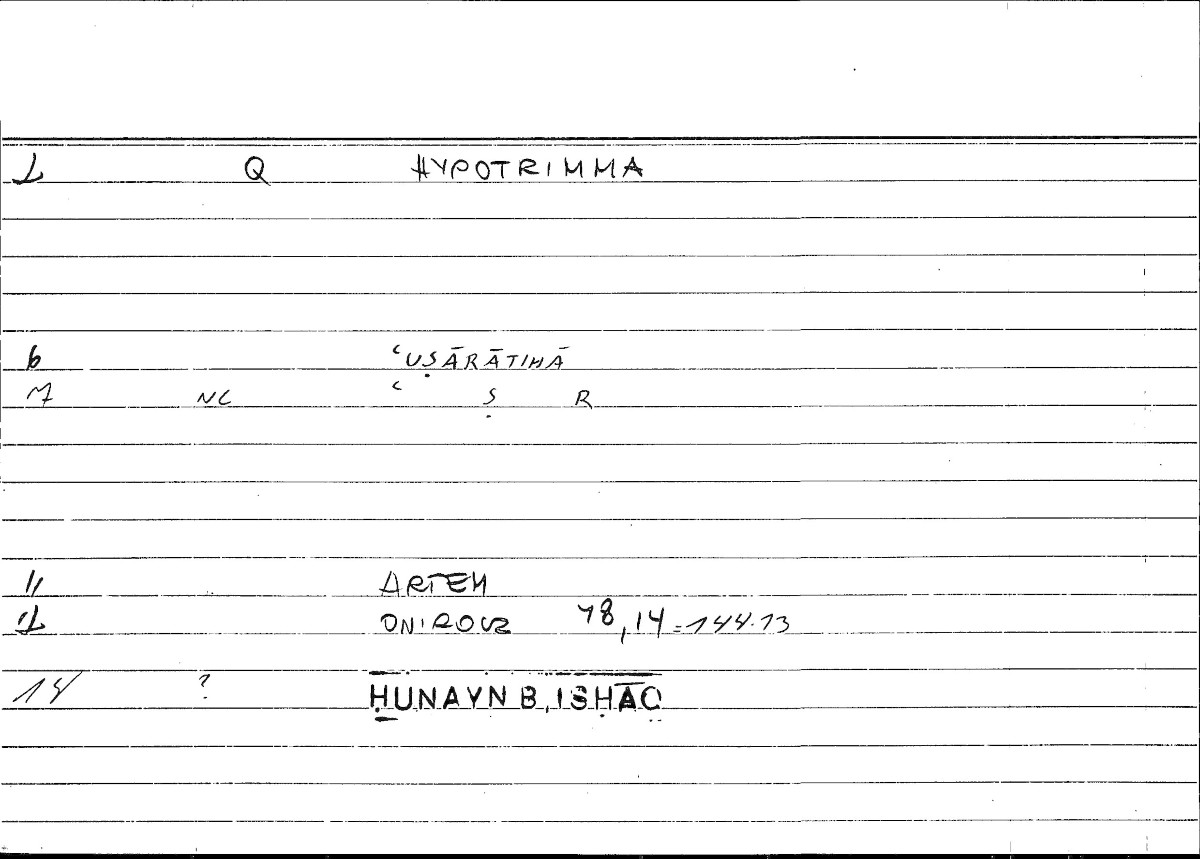 1 Q HYPOTRIMMA
6 ʿUṢĀRĀTIHĀ
7 NC ʿ Ṣ R
11 ARTEM
12 ONIROCR 78,14=144.13
14 ? ḤUNAYN B. ISḤĀQ